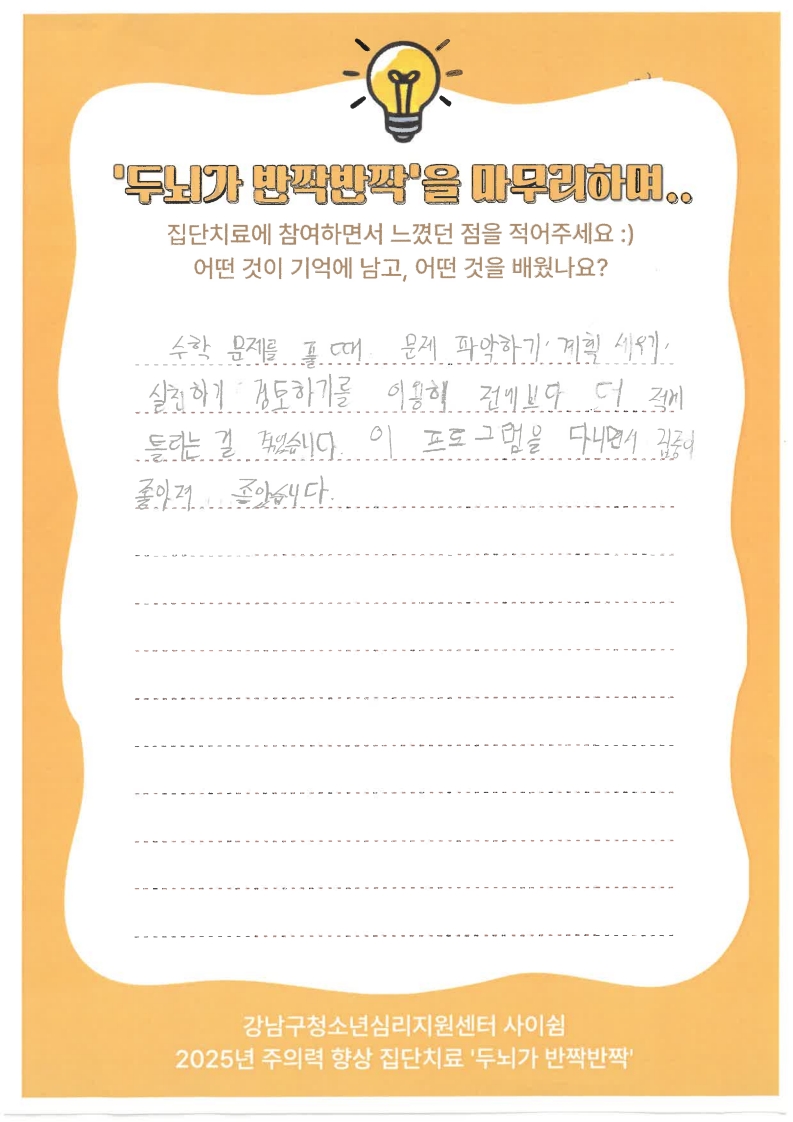 '두뇌가 반짝반짝'을 마무리하며..
집단치료에 참여하면서 느꼈던 점을 적어주세요 :)
어떤 것이 기억에 남고, 어떤 것을 배웠나요?
수학 문제를 풀 때 문제 파악하기, 계획 세우기,
실천하기 검토하기를 이용해 전에보다 더 적게
틀리는 걸 속였습니다. 이 프로그램을 다니면서 집중이
좋아져 좋았습니다.
강남구청소년심리지원센터 사이쉼
2025년 주의력 향상 집단치료 '두뇌가 반짝반짝'